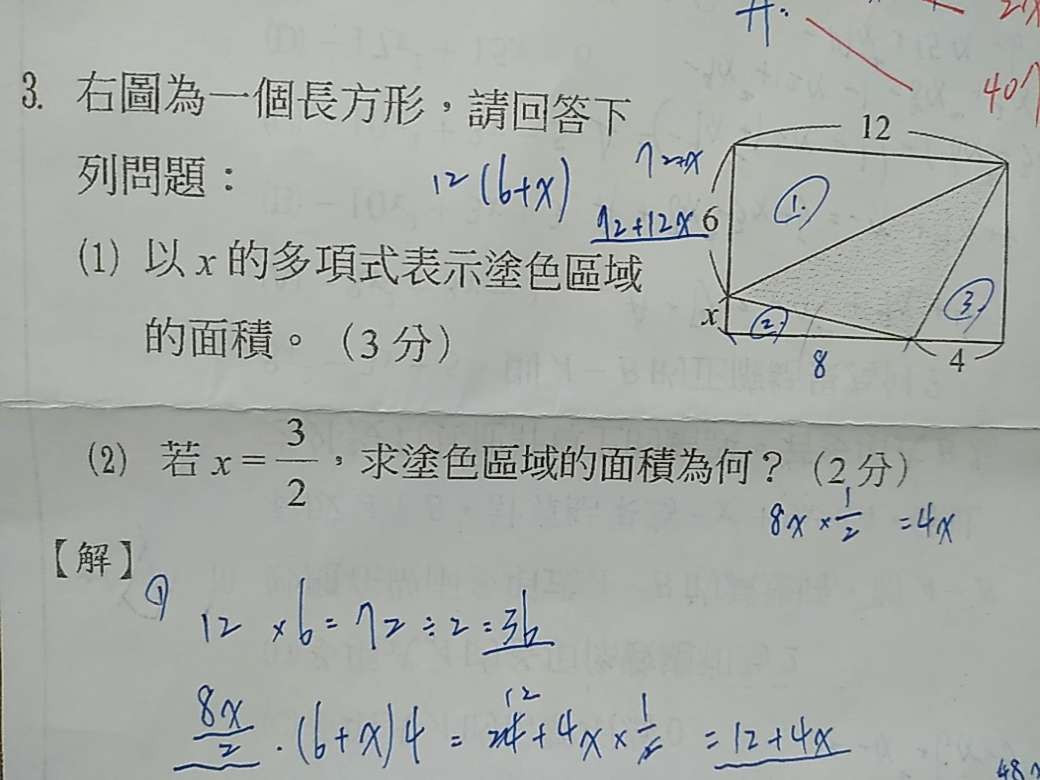 3. 右圖為一個長方形，請回答下
列問題：
12(6+x)
72+x
72+12x
12
6
x
8
4
①
②
③
(1) 以 x 的多項式表示塗色區域
的面積。（3 分）
(2) 若 x = 3/2，求塗色區域的面積為何？（2 分）
8x × 1/2 = 4x
【解】
① 12 × 6 = 72 ÷ 2 = 36
8x/2 · (6+x)4 = 12 24 + 4x × 1/2 = 12 + 4x